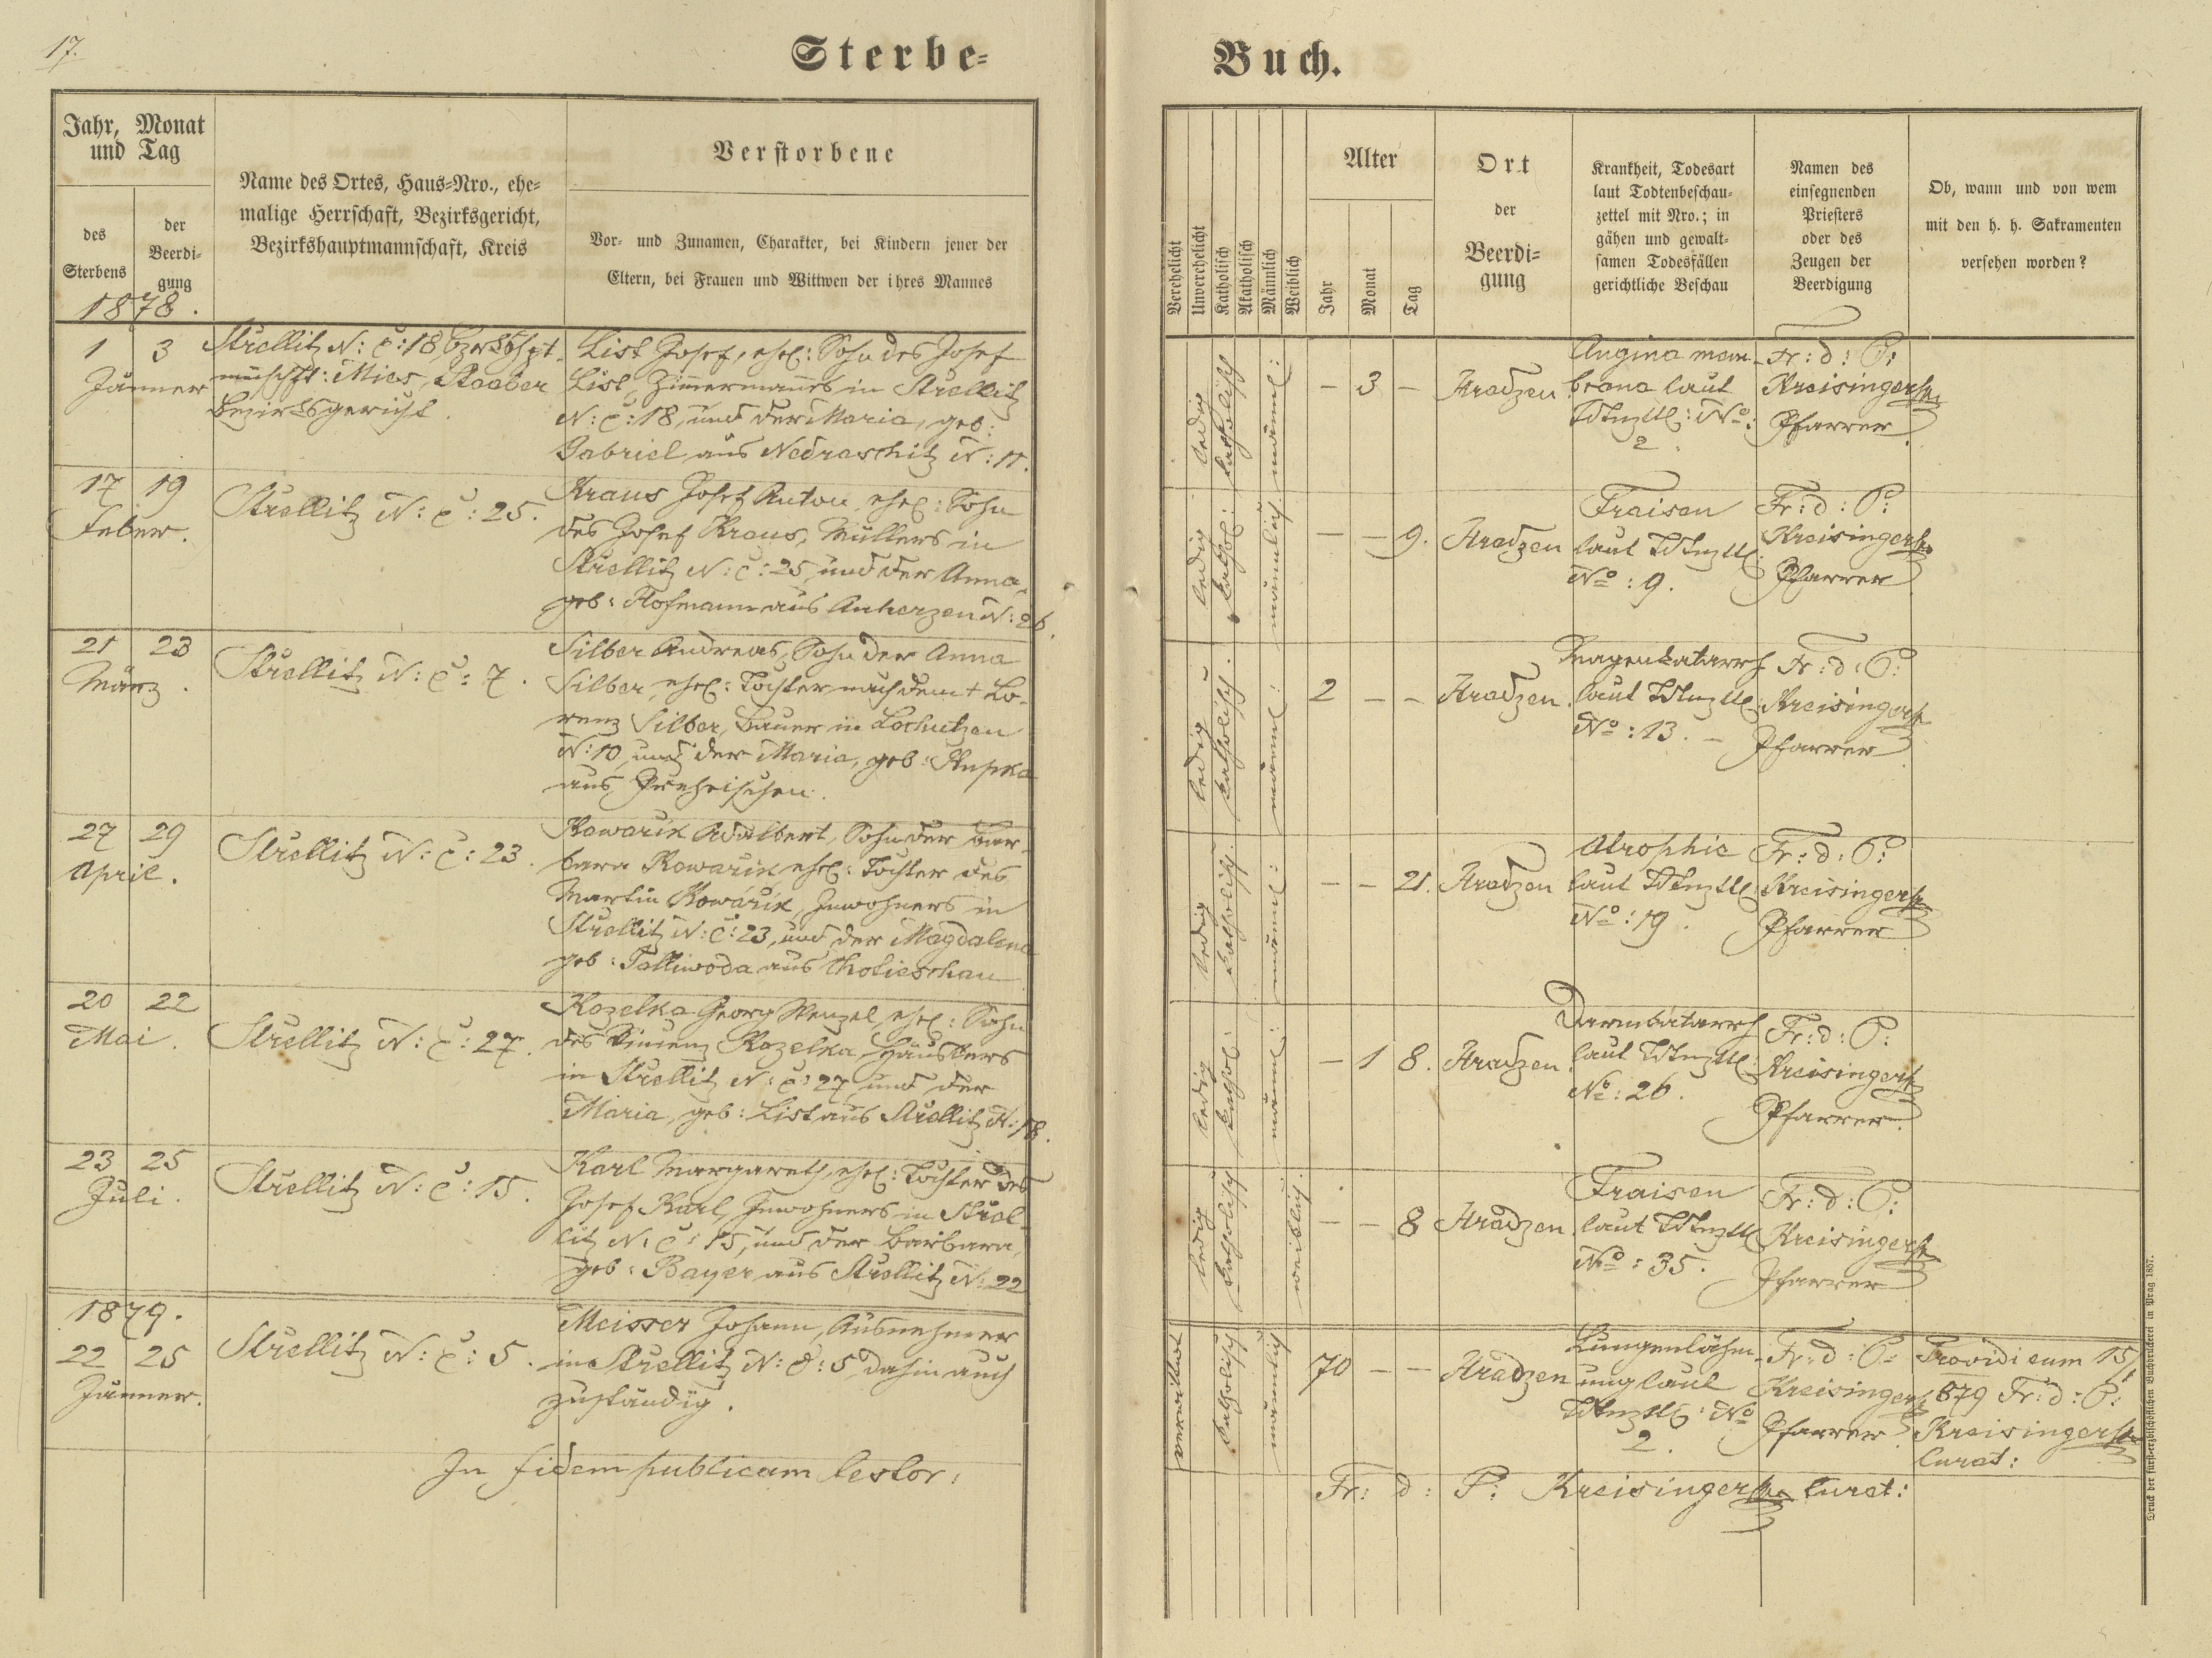 17.
Sterbe-
Jahr, Monat
und Tag
des
Sterbens
der
Beerdi-
gung
Name des Ortes, Haus-Nro., ehe-
malige Herrschaft, Bezirksgericht,
Bezirkshauptmannschaft, Kreis
Verstorbene
Vor- und Zunamen, Charakter, bei Kindern jener der
Eltern, bei Frauen und Wittwen der ihres Mannes
1878.
1 3
Jänner
Strellitz N: C: 18
Mies, Staaber
Bezirksgericht.
List Josef, ehel: Sohn des Josef
List, Zimmermanns in Strellitz
N: C: 18, und der Maria, geb:
Gabriel aus Nedraschitz N: 11.
17 19
Feber.
Strellitz N: C: 25.
Kraus Josef Anton, ehel: Sohn
des Josef Kraus, Müllers in
Strellitz N: C: 25, und der Anna,
geb: Hofmann aus Anherzen N: 26.
21 23
März.
Strellitz N: C: 7.
Silber Andreas, Sohn der Anna
Silber, ehel: Tochter nach dem † Lo-
renz Silber, Bauer in Lochutzen
N: 10, und der Maria, geb:
aus
27 29
April.
Strellitz N: C: 23.
Kowarik Adalbert, Sohn der Bar-
bara Kowarik ehel: Tochter des
Martin Kowarik, Inwohners in
Strellitz N: C: 23, und der Magdalena
geb: Talliwoda aus Chotieschau
20 22
Mai.
Strellitz N: C: 27.
Kozelka Georg Wenzel, ehel: Sohn
des Vincenz Kozelka, Häuslers
in Strellitz N: C: 27, und der
Maria, geb: List aus Strellitz N: 18.
23 25
Juli.
Strellitz N: C: 15.
Karl Margareth, ehel: Tochter des
Josef Karl, Inwohners in Strel-
litz N: C: 15, und der Barbara,
geb: Bayer aus Strellitz N: 22
1879.
22 25
Jänner.
Strellitz N: C: 5.
Meisser Johann, Ausnehmer
in Strellitz N: C: 5, dahin auch
zuständig.
In fidem publicam testor:
Buch.
Verehelicht
Unverehelicht
Katholisch
Akatholisch
Männlich
Weiblich
Alter
Jahr
Monat
Tag
Ort
der
Beerdi-
gung
Krankheit, Todesart
laut Todtenbeschau-
zettel mit Nro.; in
gähen und gewalt-
samen Todesfällen
gerichtliche Beschau
Namen des
einsegnenden
Priesters
oder des
Zeugen der
Beerdigung
Ob, wann und von wem
mit den h. h. Sakramenten
versehen worden?
ledig
katholisch
männl:
– 3 –
Hradzen
Angina mem-
brana laut
Tdtnzttl: No:
2
Fr: d: P:
Kreisinger
Pfarrer
ledig
kathol:
männlich
– – 9.
Hradzen
Fraisen
laut Tdtnzttl
No: 9.
Fr: d: P:
Kreisinger
Pfarrer
ledig
katholisch.
männl:
2 – –
Hradzen.
Magenkatarrh
laut Tdtnzttl:
No: 13. –
Fr: d: P:
Kreisinger
Pfarrer
ledig
katholisch.
männl:
– – 21.
Hradzen
Atrophie
laut Tdtnzttl:
No: 19.
Fr: d: P:
Kreisinger
Pfarrer
ledig
kathol:
männl:
– 1 8.
Hradzen.
Darmkatarrh
laut Tdtnzttl:
No: 26.
Fr: d: P:
Kreisinger
Pfarrer
ledig
katholisch
weiblich.
– – 8
Hradzen.
Fraisen
laut Tdtnzttl
No: 35.
Fr: d: P:
Kreisinger
Pfarrer
verwitwet
katholisch
männlich
70 – –
Hradzen
Lungenlähm-
ung laut
Tdtnzttl: No
2.
Fr: d: P:
Kreisinger
Pfarrer
Providi eum 15/1
879 Fr: d: P:
Kreisinger
Curat:
Fr: d: P: Kreisinger Curat:
Druck der fürst-erzbischöflichen Buchdruckerei in Prag 1857.